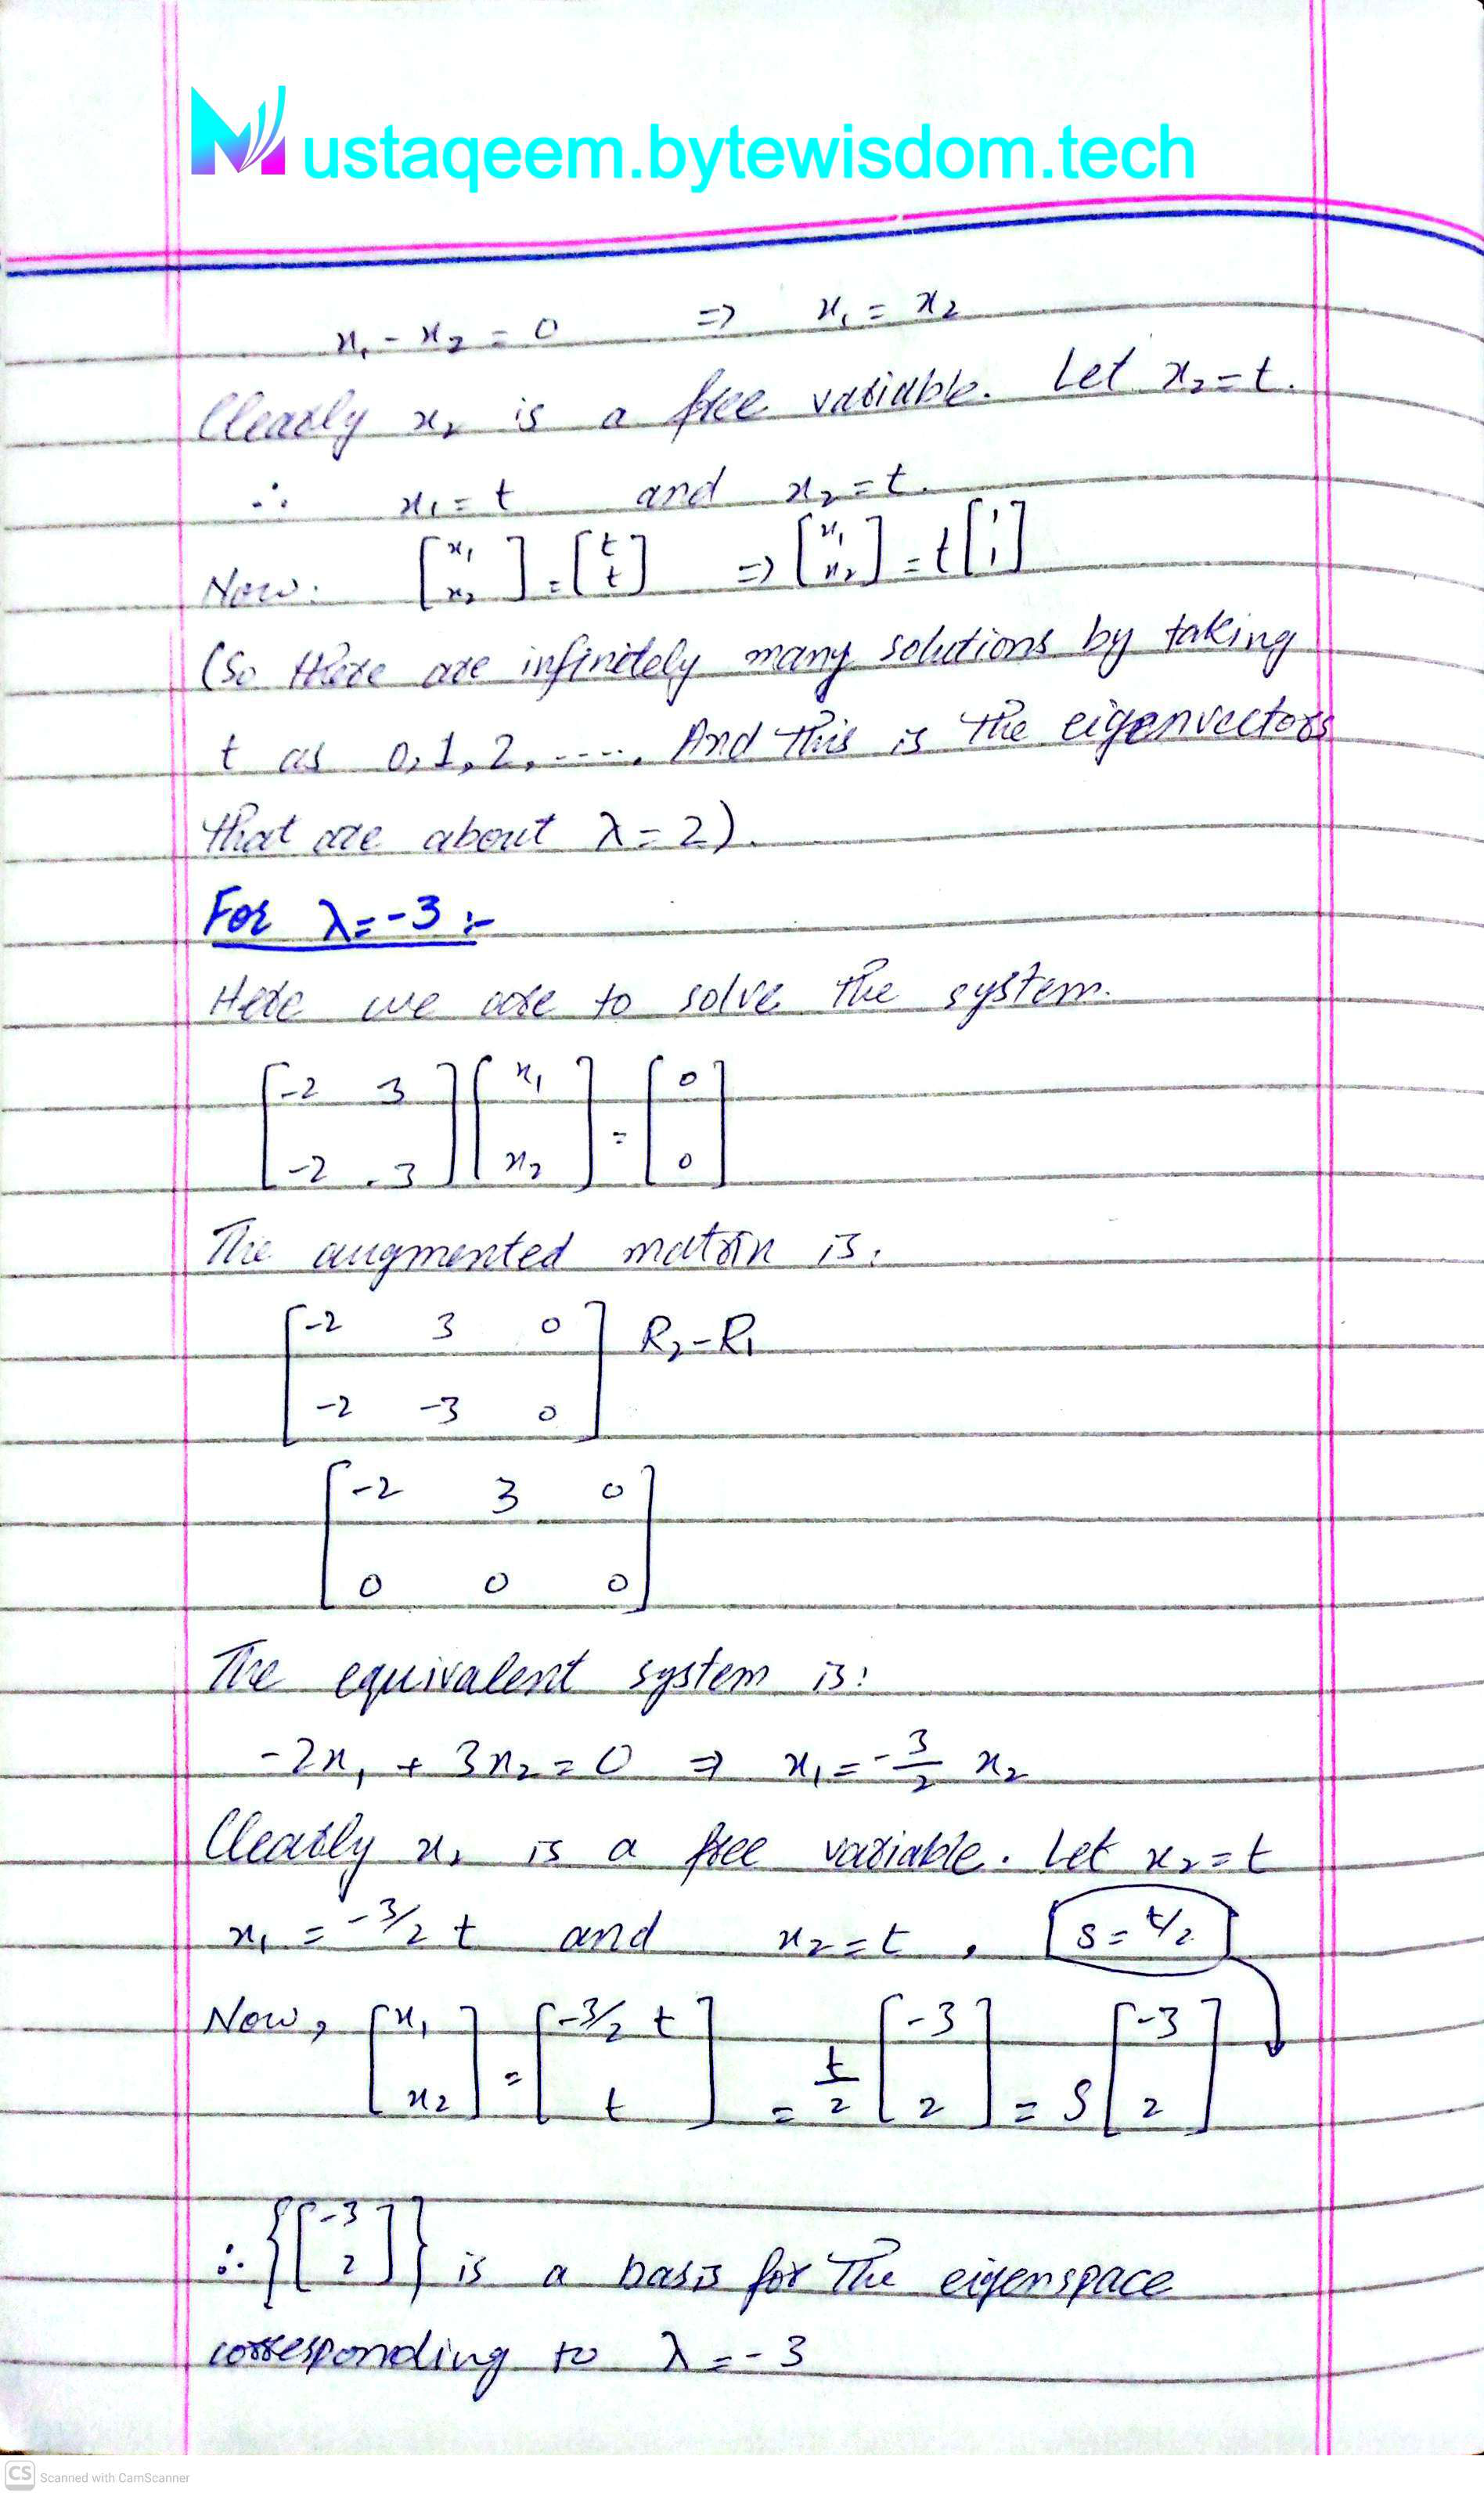 Mustaqeem.bytewisdom.tech
x₁ - x₂ = 0 => x₁ = x₂
Clearly x₂ is a free variable. Let x₂ = t.
∴ x₁ = t and x₂ = t.
Now: [x₁ x₂] = [t t] => [x₁ x₂] = t [1 1]
(So there are infinitely many solutions by taking
t as 0, 1, 2, ..... And this is the eigenvectors
that are about λ = 2).
For λ = -3 :-
Here we are to solve the system.
[-2 3
-2 -3] [x₁ x₂] = [0 0]
The augmented matrix is:
[-2 3 0
-2 -3 0] R₂ - R₁
[-2 3 0
0 0 0]
The equivalent system is:
-2x₁ + 3x₂ = 0 => x₁ = -3/2 x₂
Clearly x₂ is a free variable. Let x₂ = t
x₁ = -3/2 t and x₂ = t, s = t/2
Now, [x₁ x₂] = [-3/2 t t] = t/2 [-3 2] = s [-3 2]
∴ {[-3 2]} is a basis for the eigenspace
corresponding to λ = -3
CS Scanned with CamScanner